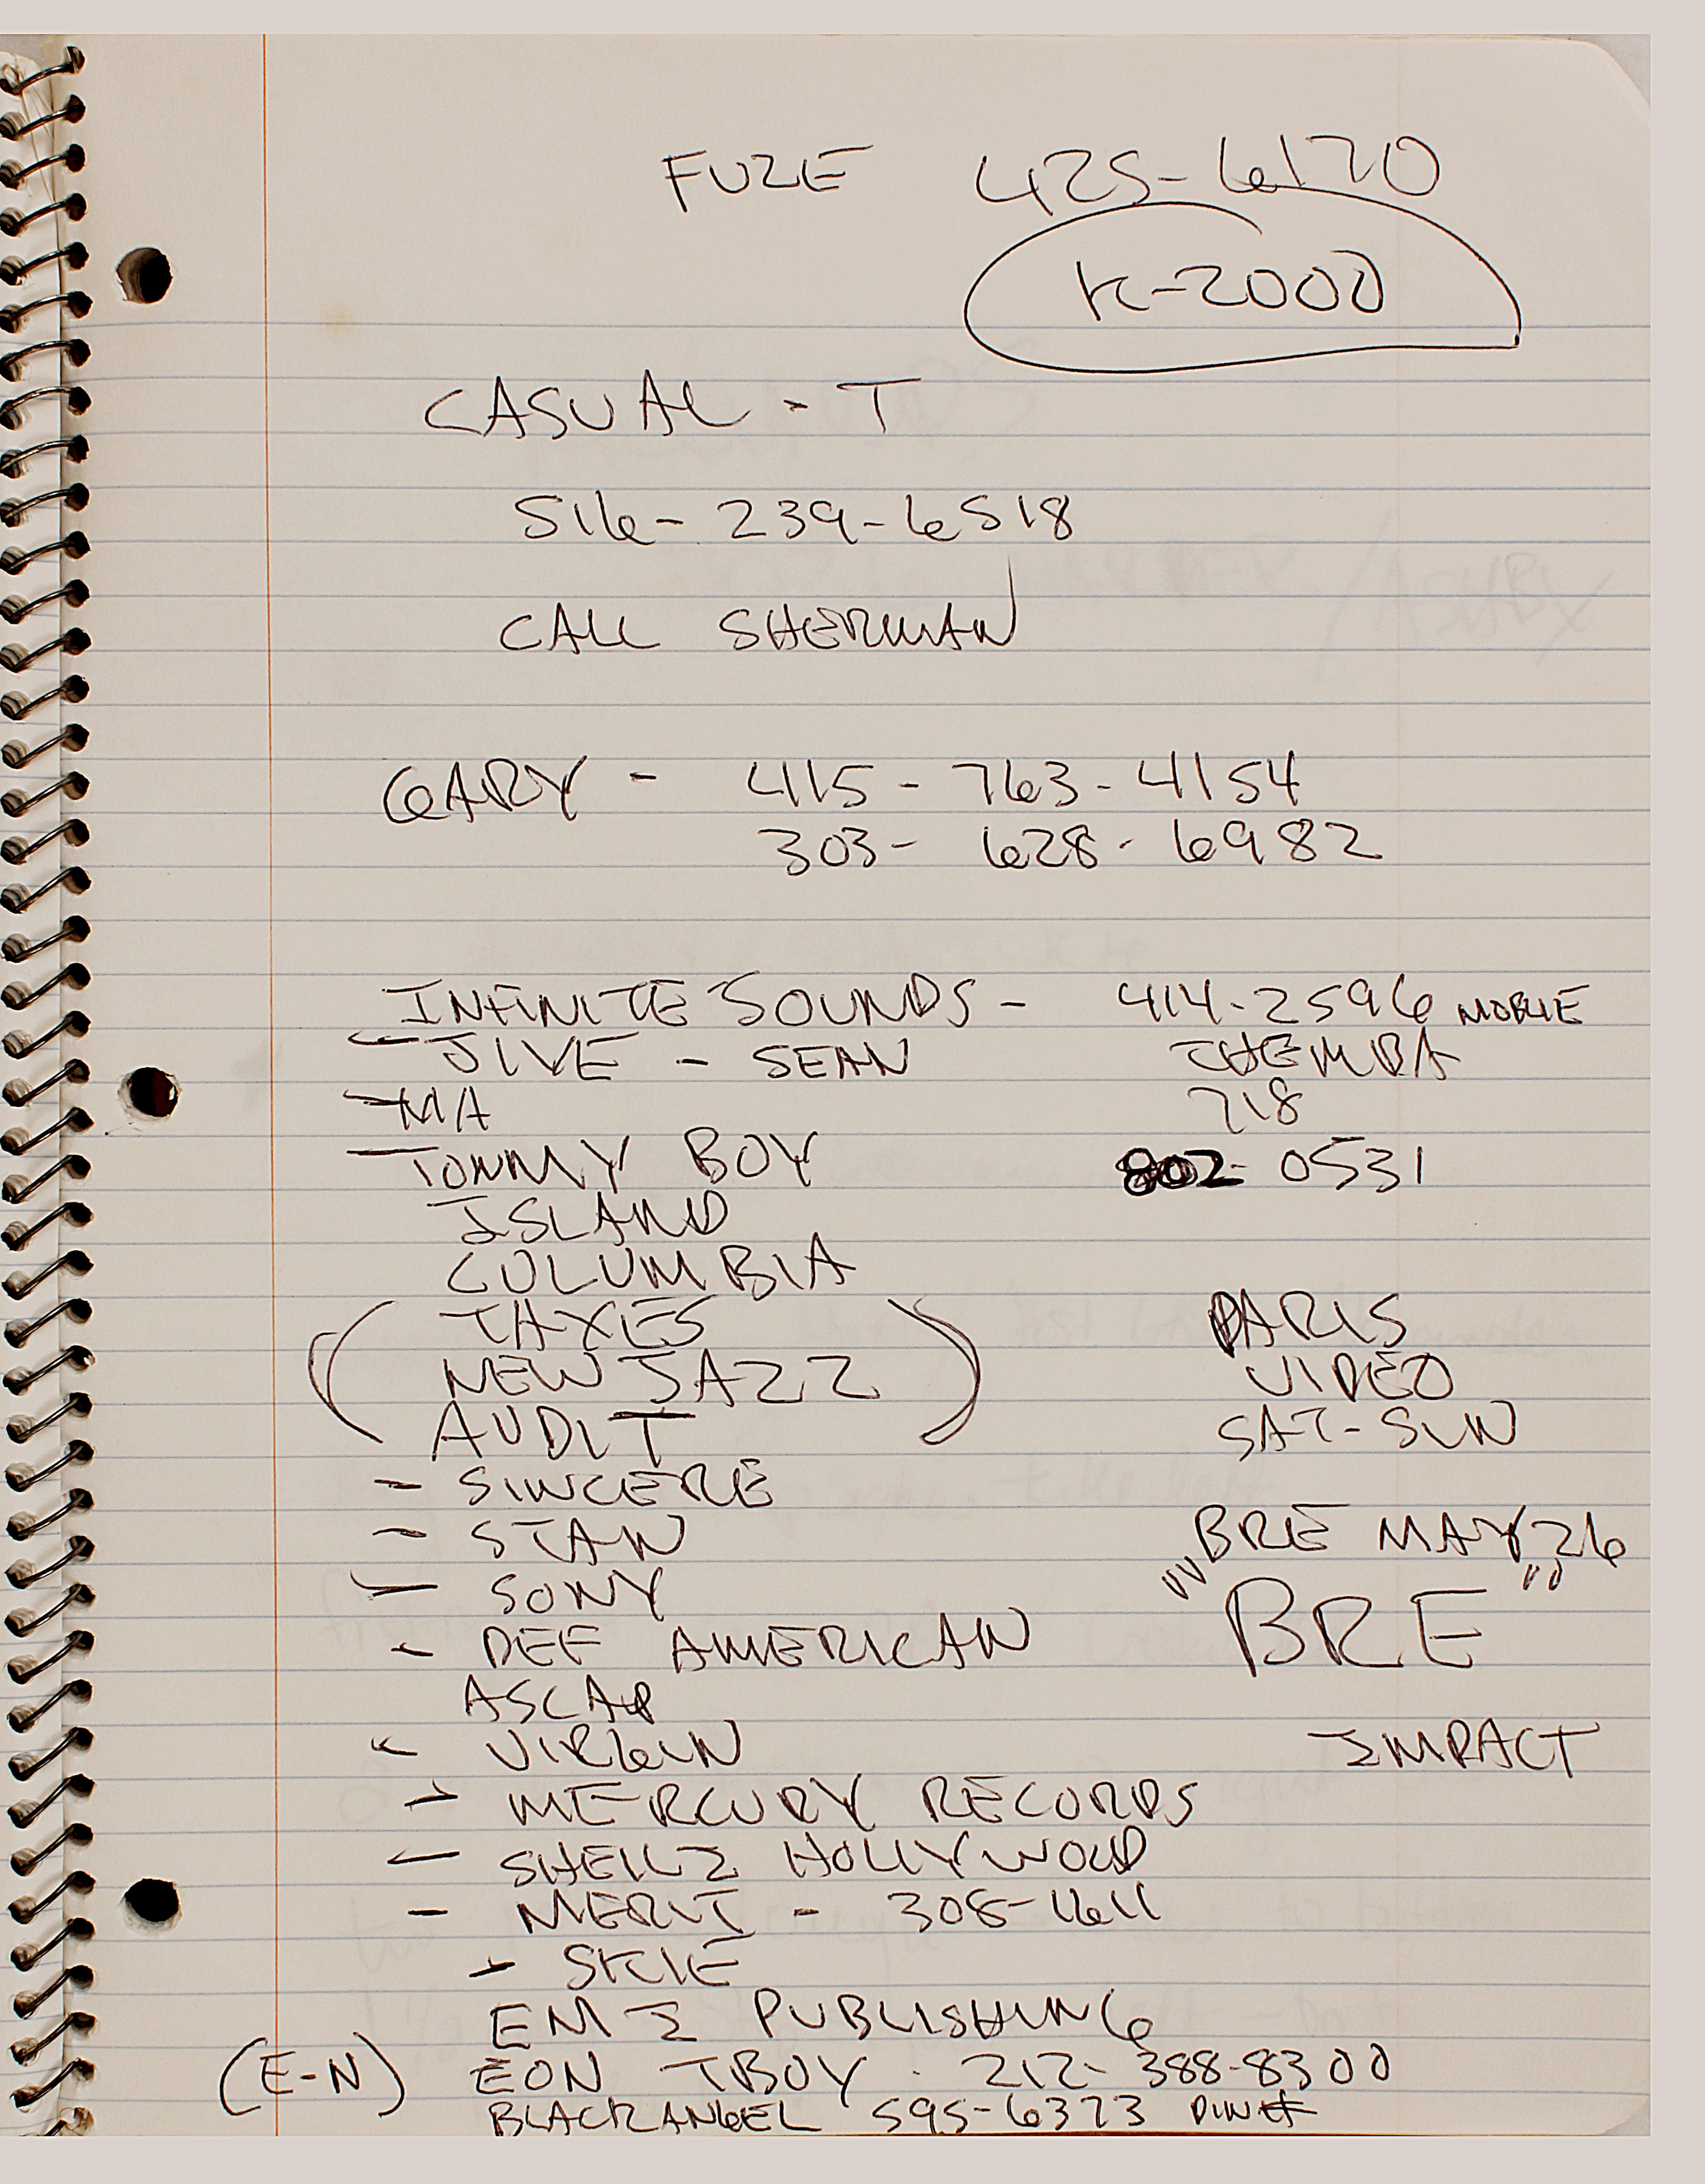 FUZE 425-6170
K-2000
CASUAL - T
516-239-6518
CALL SHERMAN
GARY - 415-763-4154
303-628-6982
INFINITE SOUNDS - 414-2596 MOBILE
JIVE - SEAN THEMBA
MA 718
TOMMY BOY 802-0531
ISLAND
COLUMBIA
(TAXES PARIS
NEW JAZZ) VIDEO
AUDIT SAT-SUN
- SINCERE
- STAN BRE MAY 26
- SONY "BRE"
- DEF AMERICAN
ASCAP
- VIRGIN IMPACT
- MERCURY RECORDS
- SHEILI HOLLYWOOD
- MERIT - 308-1611
- SKIE
EMI PUBLISHING
(E-N) EON TBOY. 212-388-8300
BLACK ANGEL 595-6373